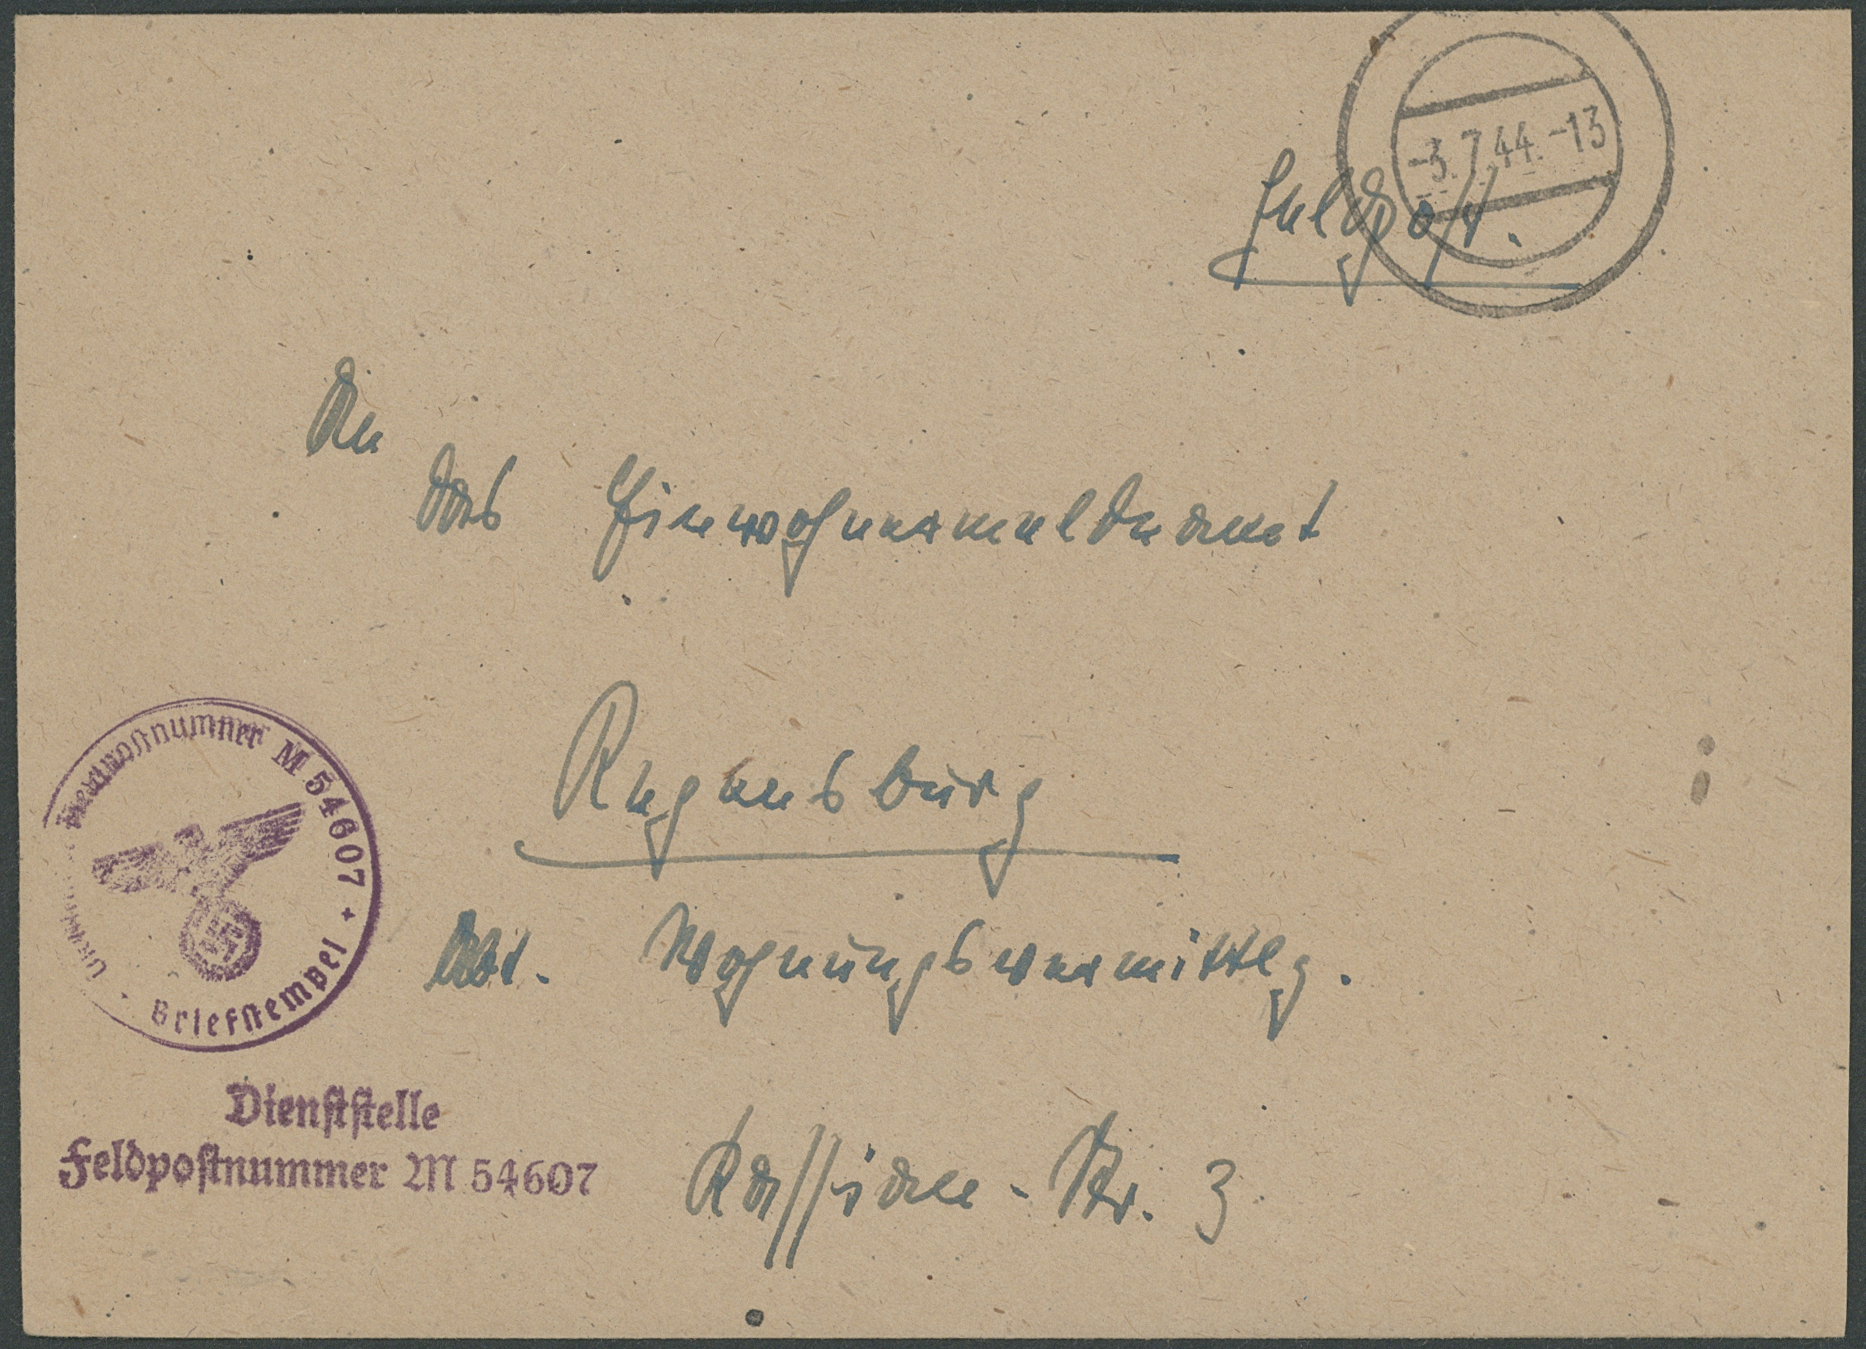 -3.7.44.-13
Feldpost.
An
das Einwohnermeldeamt
Regensburg
Abt. Wohnungsvermittlg.
Kassian-Str. 3
Feldpostnummer M 54607
Briefstempel
Dienststelle
Feldpostnummer M 54607